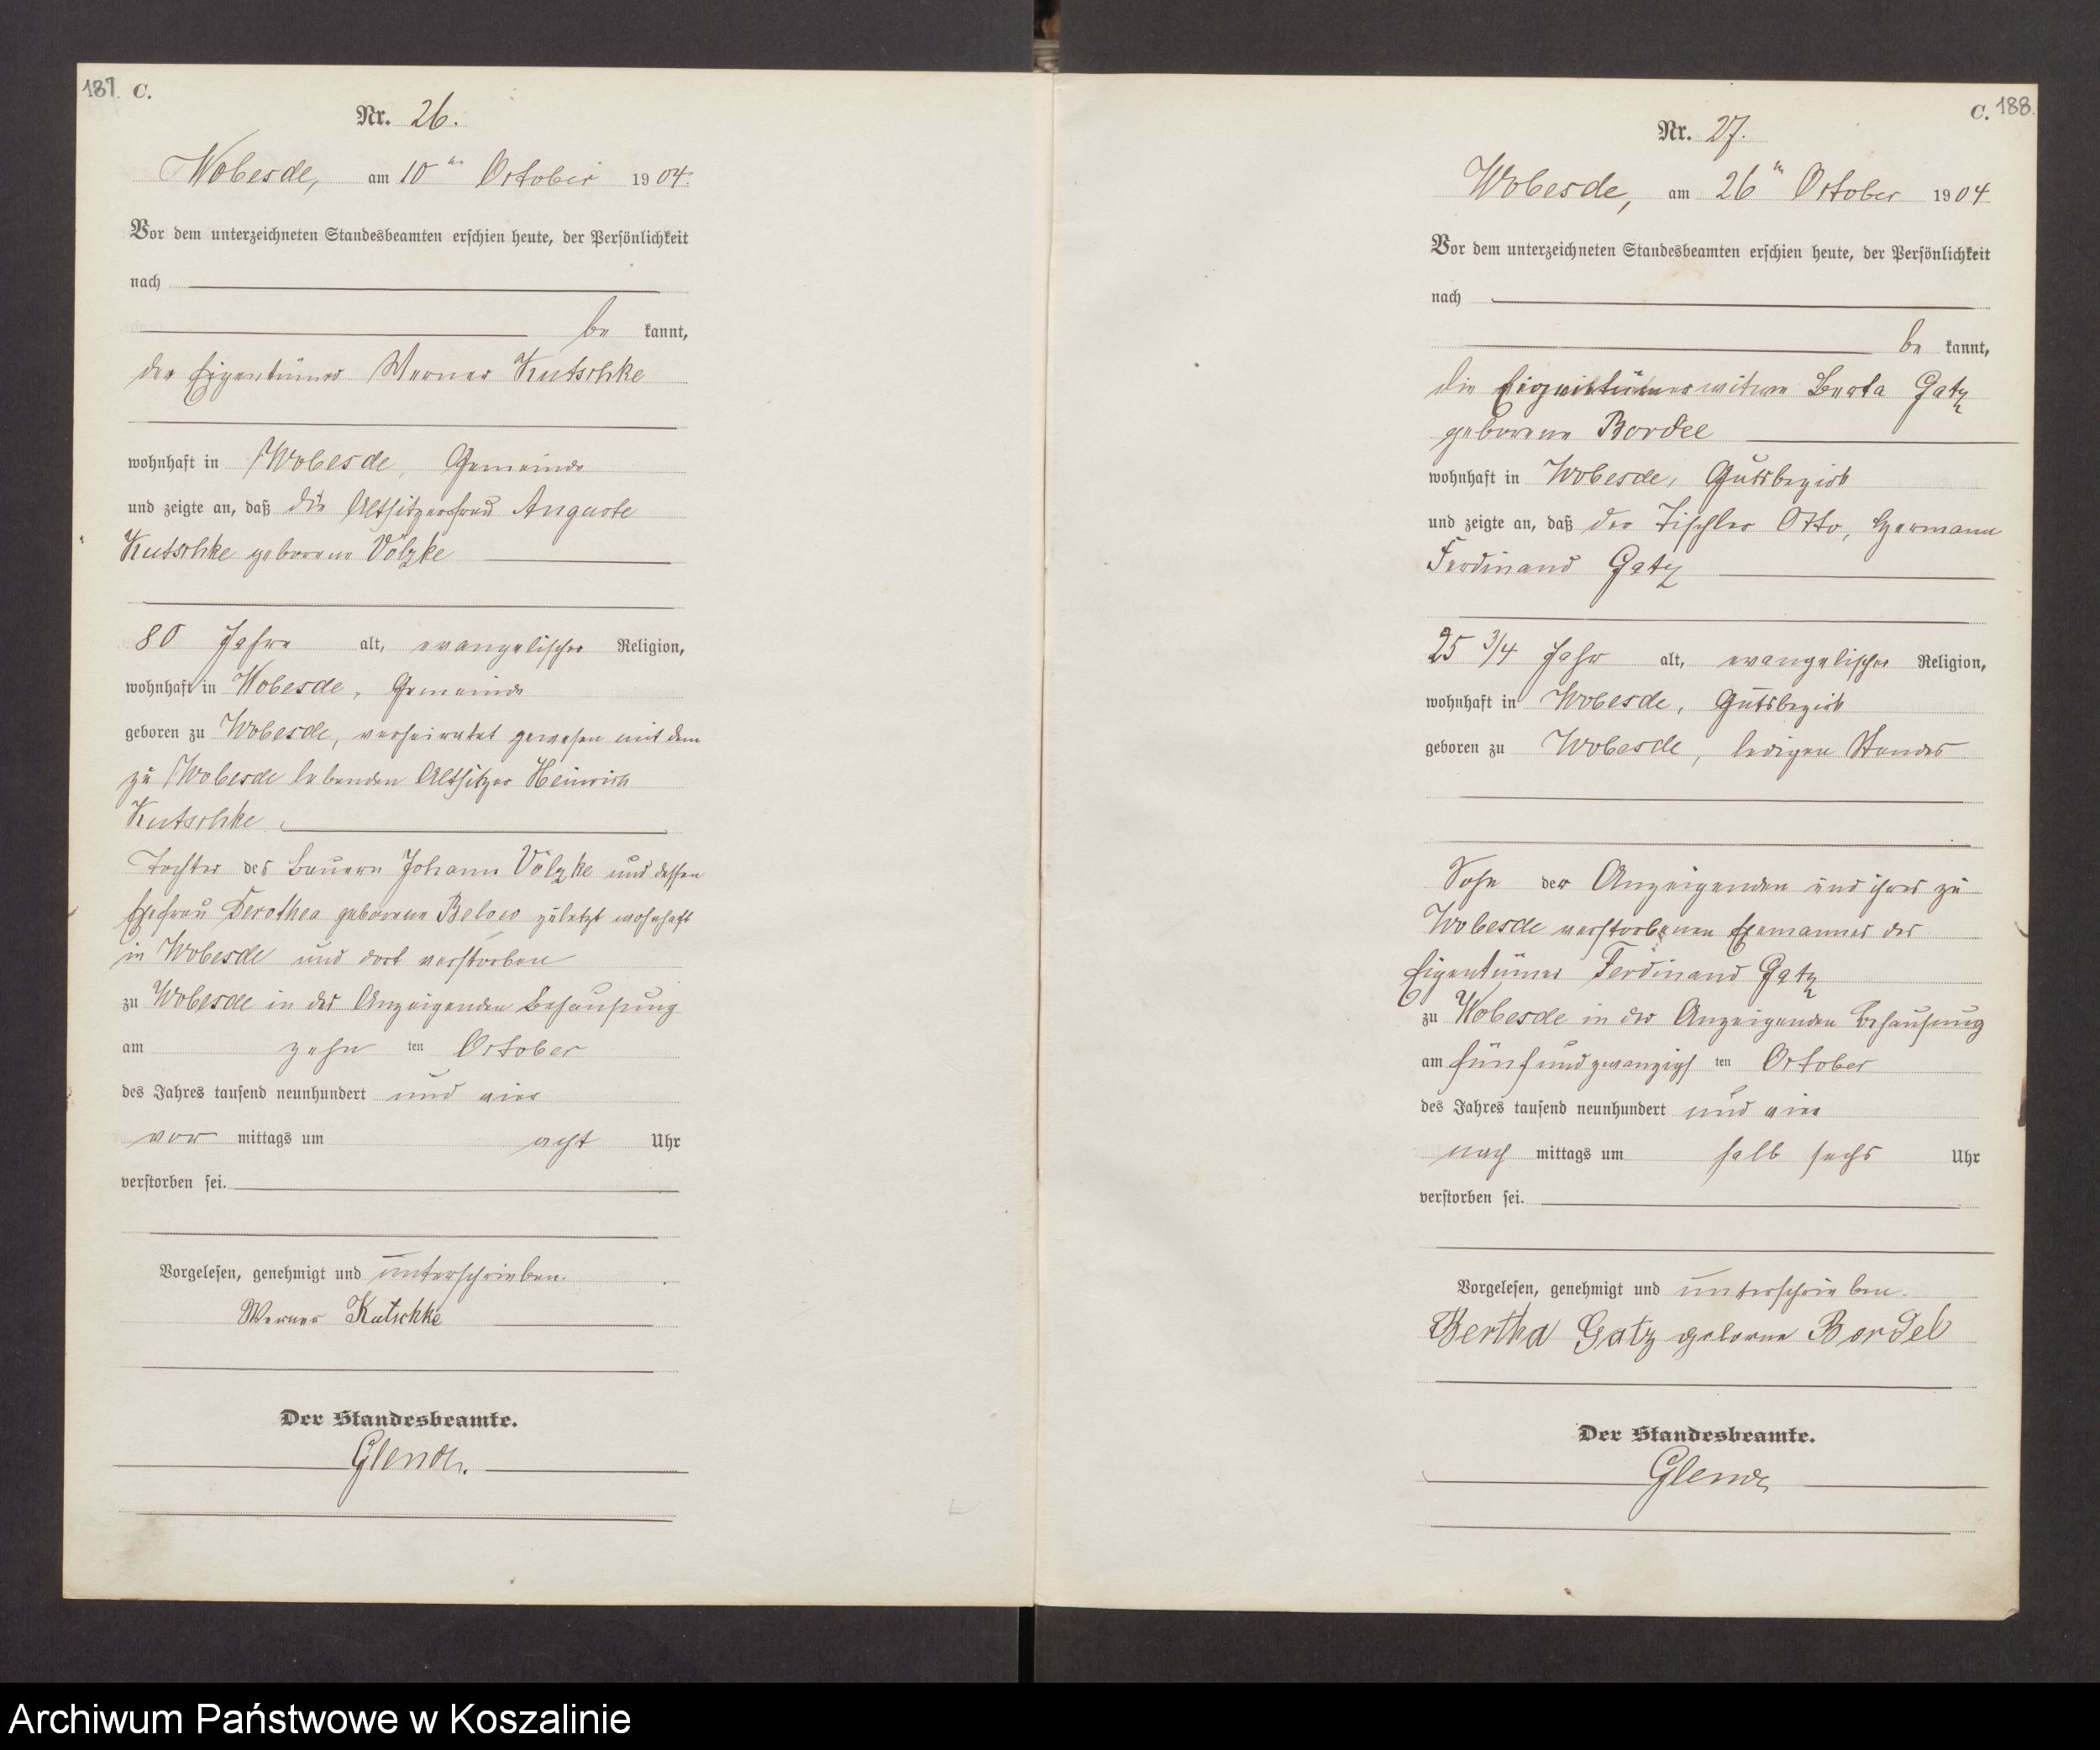 187. C.
Nr. 26.
Wobesde, am 10ten October 1904.
Vor dem unterzeichneten Standesbeamten erschien heute, der Persönlichkeit
nach
be kannt,
der Eigentümer Werner Kutschke
wohnhaft in Wobesde, Gemeinde
und zeigte an, daß die Altsitzerfrau Auguste
Kutschke geborene Völzke
80 Jahre alt, evangelischer Religion,
wohnhaft in Wobesde, Gemeinde
geboren zu Wobesde, verheiratet gewesen mit dem
zu Wobesde lebenden Altsitzer Heinrich
Kutschke
Tochter des Bauern Johann Völzke und dessen
Ehefrau Derothea geborene Below zuletzt wohnhaft
in Wobesde und dort verstorben
zu Wobesde in des Anzeigenden Behausung
am zehn ten October
des Jahres tausend neunhundert und vier
vor mittags um acht Uhr
verstorben sei.
Vorgelesen, genehmigt und unterschrieben.
Werner Kutschke
Der Standesbeamte.
C. 188.
Nr. 27.
Wobesde, am 26ten October 1904
Vor dem unterzeichneten Standesbeamten erschien heute, der Persönlichkeit
nach
be kannt,
die Eigentümerwitwe Berta Gatz
geborene Bordel
wohnhaft in Wobesde, Gutsbezirk
und zeigte an, daß der Tischler Otto, Hermann
Ferdinand Gatz
25 3/4 Jahr alt, evangelischer Religion,
wohnhaft in Wobesde, Gutsbezirk
geboren zu Wobesde, ledigen Standes
Sohn der Anzeigenden und ihres zu
Wobesde verstorbenen Ehemannes des
Eigentümer Ferdinand Gatz
zu Wobesde in der Anzeigenden Behausung
am fünfundzwanzigs ten October
des Jahres tausend neunhundert und vier
nach mittags um halb sechs Uhr
verstorben sei.
Vorgelesen, genehmigt und unterschrieben.
Bertha Gatz geborne Bordel
Der Standesbeamte.
Archiwum Państwowe w Koszalinie